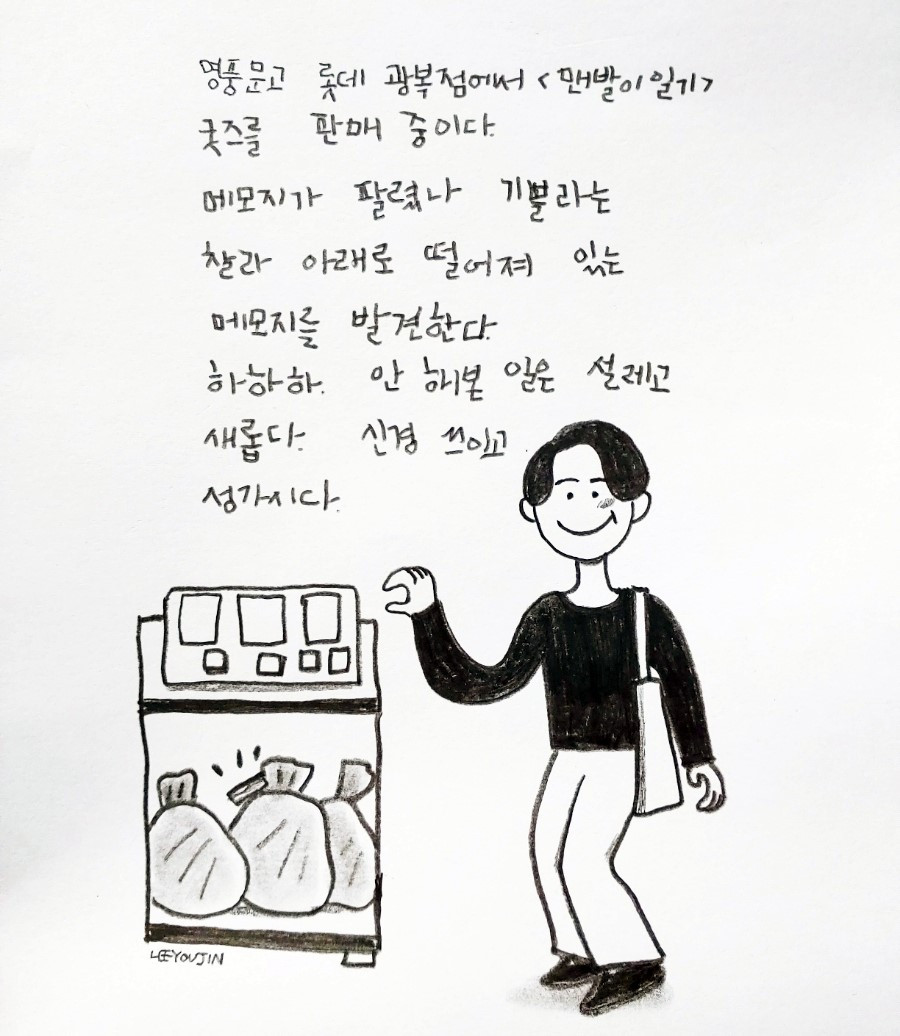 영풍문고 롯데 광복점에서 <맨발이 일기>
굿즈를 판매 중이다.
메모지가 팔렸나 기쁠라는
찰라 아래로 떨어져 있는
메모지를 발견한다.
하하하. 안 해본 일은 설레고
새롭다. 신경 쓰이고
성가시다.
LEEYOUJIN